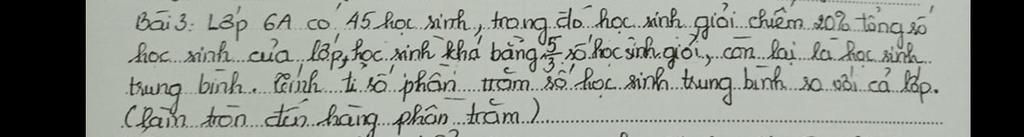 Bài 3: Lớp 6A có 45 học sinh, trong đó học sinh giỏi chiếm 20% tổng số
học sinh của lớp, học sinh khá bằng 5/3 số học sinh giỏi, còn lại là học sinh
trung bình. Tính tỉ số phần trăm số học sinh trung bình so với cả lớp.
(làm tròn đến hàng phần trăm)